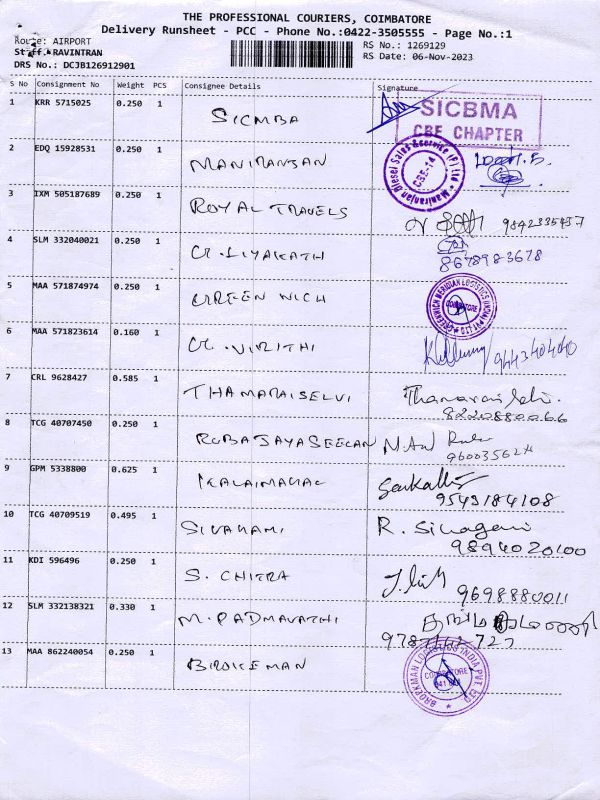 THE PROFESSIONAL COURIERS, COIMBATORE
Delivery Runsheet - PCC - Phone No.:0422-3505555 - Page No.:1
Route: AIRPORT
RS No.: 1269129
Staff: RAVINTRAN
RS Date: 06-Nov-2023
DRS No.: DCJB126912901
S No Consignment No Weight PCS Consignee Details Signature
1 KRR 5715025 0.250 1 SICMBA SICBMA
CBE CHAPTER
2 EDQ 15928531 0.250 1 MANIRANJAN
Maniranjan Diesel Sales & Service (P) Ltd CBE-14
3 IXM 505187689 0.250 1 ROYAL TRAVELS
4 SLM 332040021 0.250 1 G. LIYAKATH
8678983678
5 MAA 571874974 0.250 1 GREEN WICH
GREENWICH MERIDIAN LOGISTICS (INDIA) PVT LTD COIMBATORE
6 MAA 571823614 0.160 1 G. VIRITHI 9443404040
7 CRL 9628427 0.585 1 THAMARAISELVI Thamaraiselvi.
8220880066
8 TCG 40707450 0.250 1 RUBA JAYASEELAN
9 GPM 5338800 0.625 1 KALAIMAGAL
9543184108
10 TCG 40709519 0.495 1 SIVAGAMI R. Sivagami
9894020100
11 KDI 596496 0.250 1 S. CHITRA
9698880011
12 SLM 332138321 0.330 1 M. PADMAVATHI
13 MAA 862240054 0.250 1 BROKEMAN
BROEKMAN LOGISTICS INDIA PVT LTD COIMBATORE